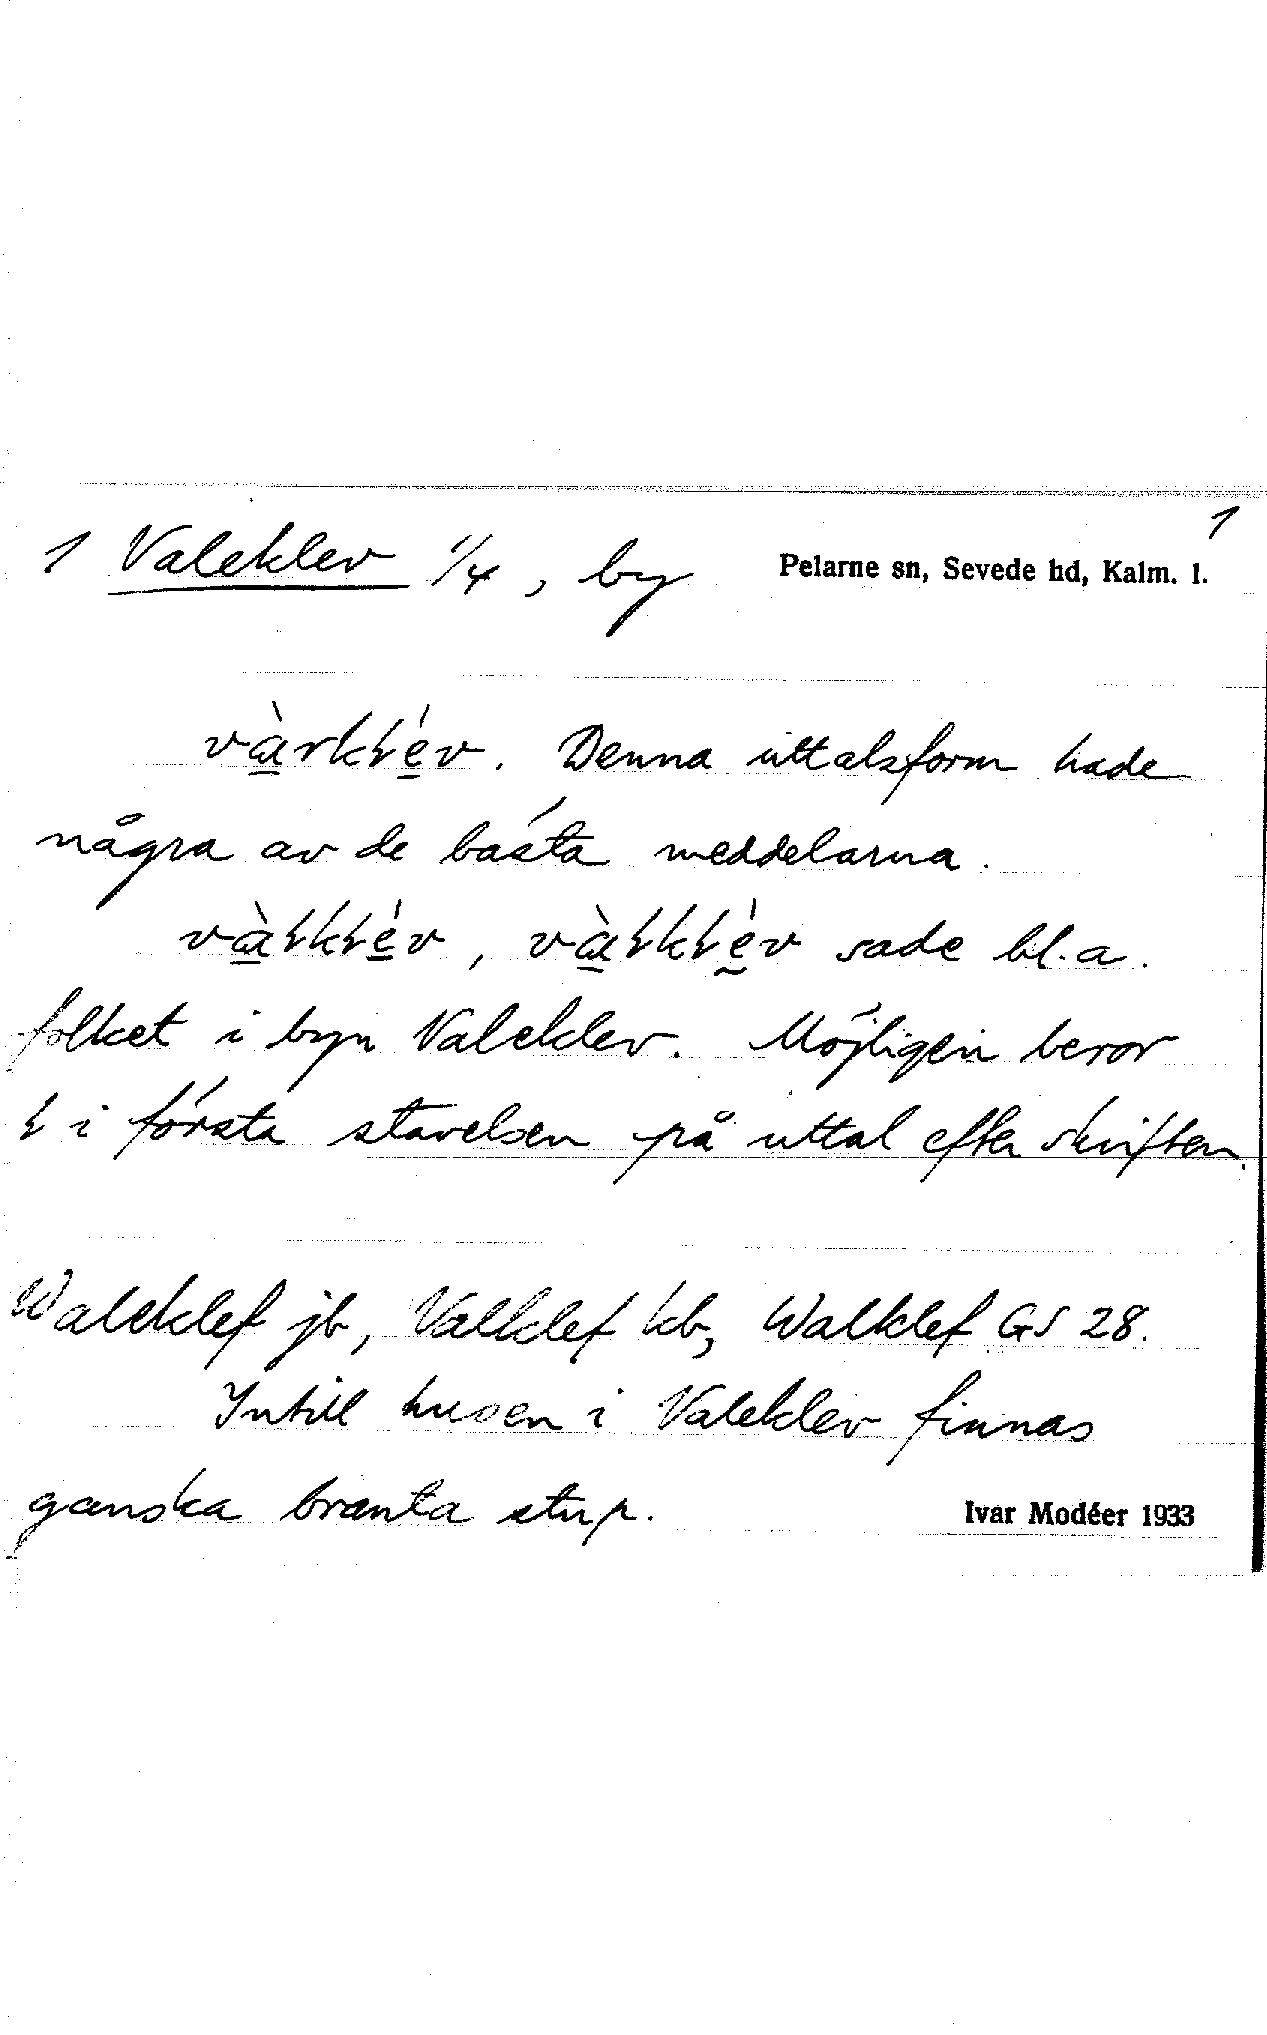 1
1 Valeklev 1/4, by Pelarne sn, Sevede hd, Kalm. l.
và̱rkⱡé̱v. Denna uttalsform hade
några av de bästa meddelarna.
và̱ⱡkⱡé̱v, và̱ⱡkⱡḛ̀v sade bl.a.
folket i byn Valeklev. Möjligen beror
ⱡ i första stavelsen på uttal efter skriften.
Waleklef jb, Valklef kb, Walklef GS 28.
Intill husen i Valeklev finnas
ganska branta stup. Ivar Modéer 1933